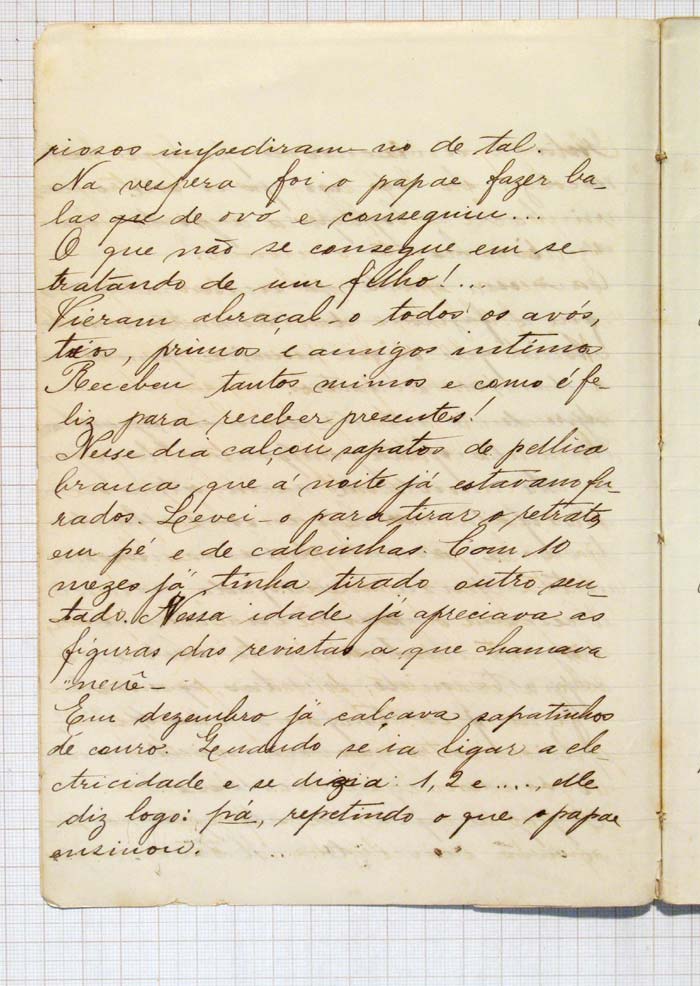 riosos impediram-no de tal.
Na vespera foi o papae fazer ba-
las que de ovo e conseguiu...
O que não se consegue em se
tratando de um filho!...
Vieram abraçal-o todos os avós,
tios, primos e amigos intimos
Recebeu tantos mimos e como é fe-
liz para receber presentes!
Nesse dia calçou sapatos de pellica
branca que á noite já estavam fu-
rados. Levei-o para tirar o retrato
em pé e de calcinhas. Com 10
mezes já tinha tirado outro sen-
tado. Nessa idade já apreciava as
figuras das revistas a que chamava
"nenê-
Em dezembro já calcava sapatinhos
de couro. Quando se ia ligar a ele-
ctricidade e se dizia: 1, 2 e ...., elle
diz logo: pá, repetindo o que o papae
ensinou.